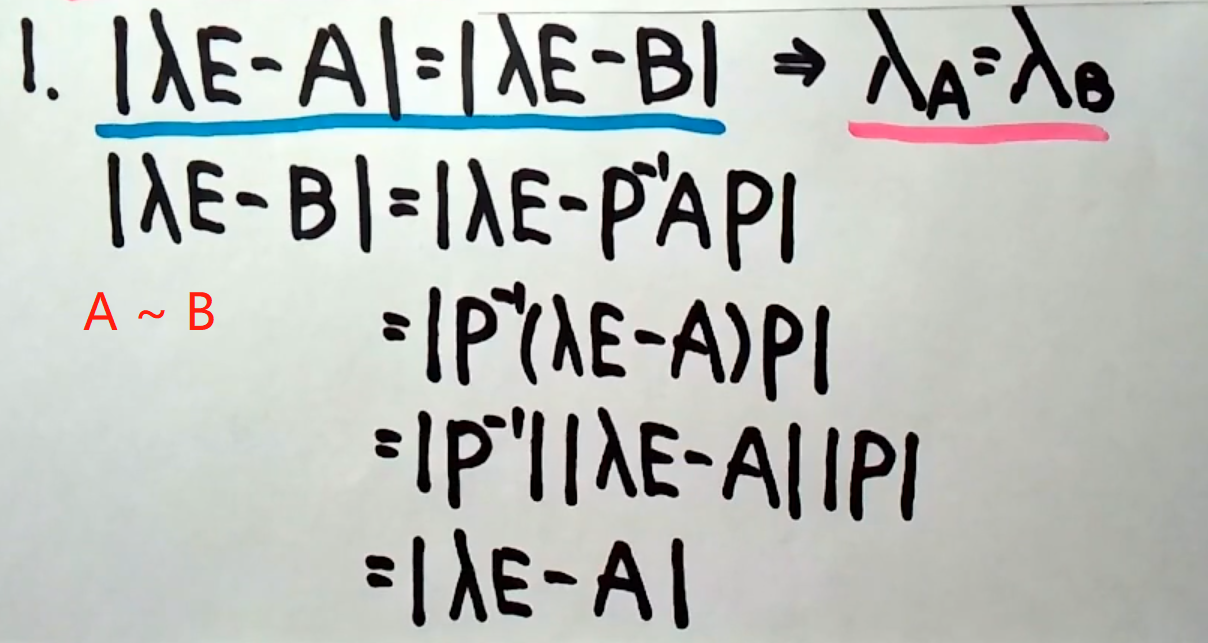 1. |λE-A|=|λE-B| ⇒ λ_A=λ_B
|λE-B|=|λE-P⁻¹AP|
A ~ B
=|P⁻¹(λE-A)P|
=|P⁻¹||λE-A||P|
=|λE-A|